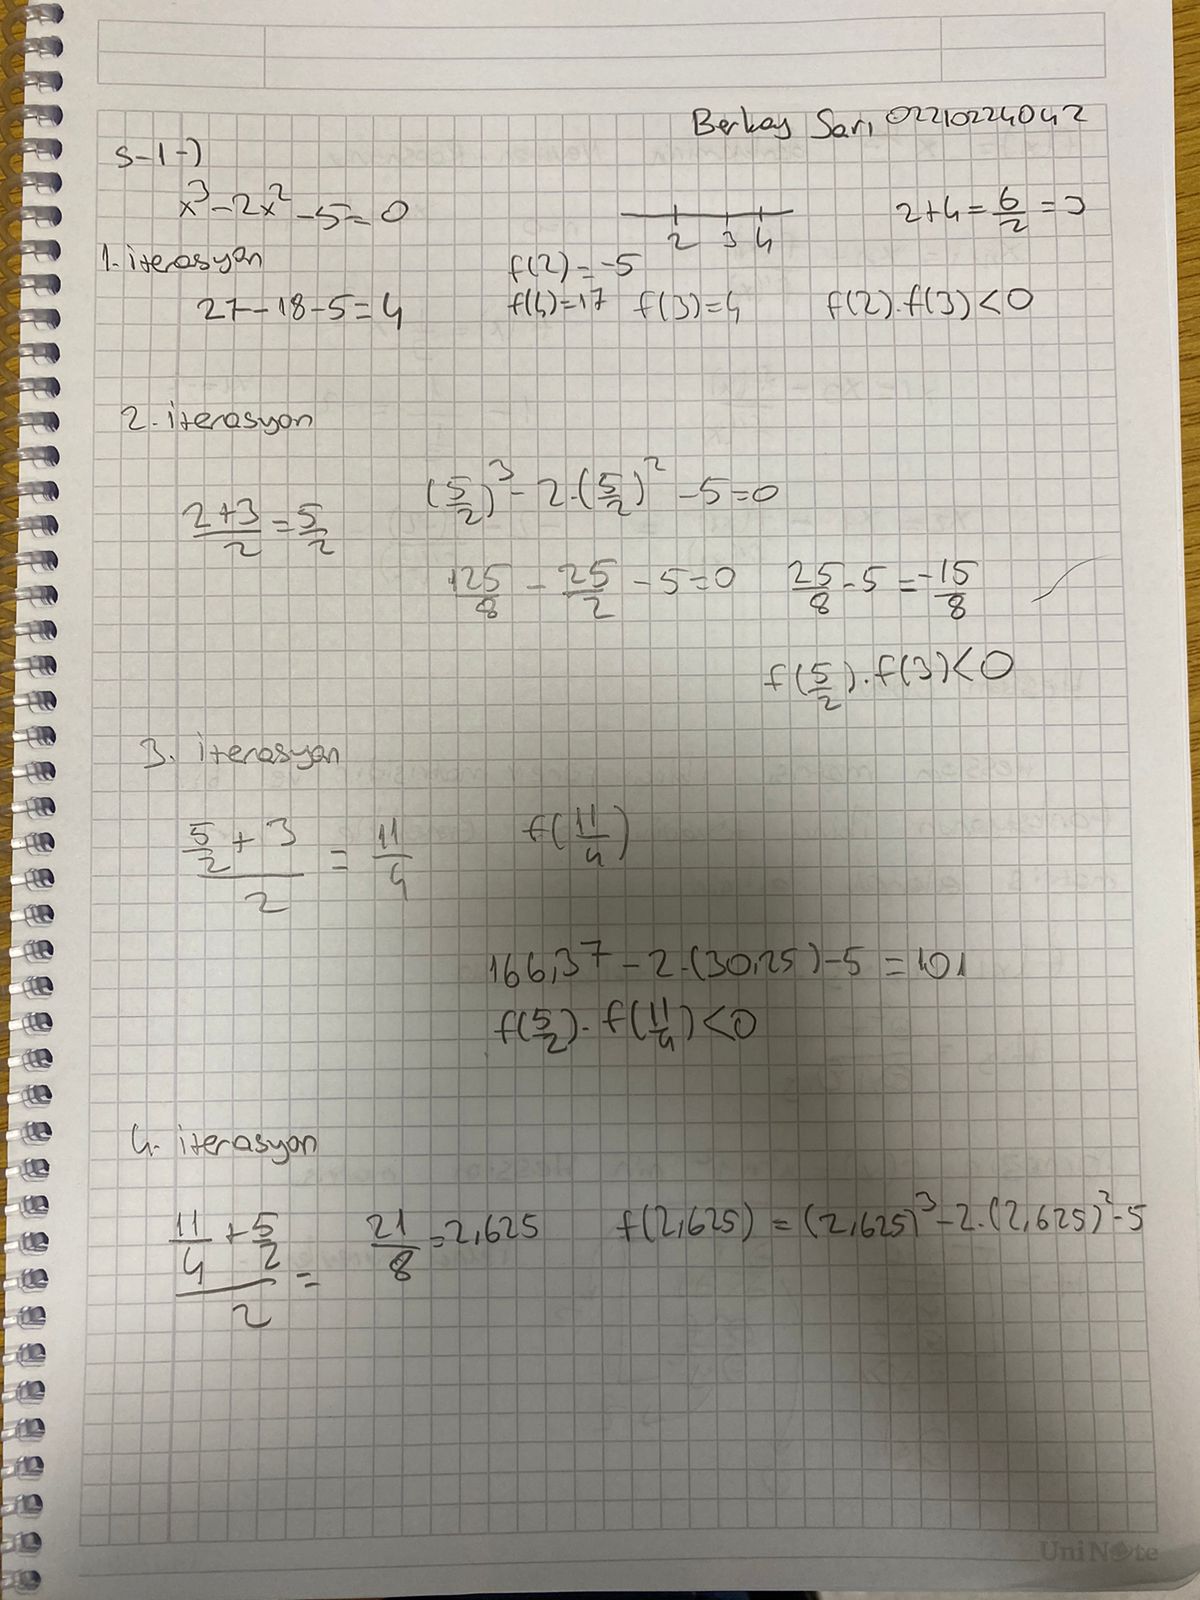 Berkay Sarı 02210224042
S-1-)
x³-2x²-5=0
2 3 4
2+4=6/2=3
1. iterasyon
f(2)=-5
27-18-5=4
f(4)=17 f(3)=4 f(2).f(3)<0
2. iterasyon
(2+3)/2=5/2
(5/2)³-2.(5/2)²-5=0
125/8-25/2-5=0 25/8-5=-15/8
f(5/2).f(3)<0
3. iterasyon
(5/2+3)/2=11/4 f(11/4)
166,37-2.(30,25)-5=101
f(5/2).f(11/4)<0
4. iterasyon
(11/4+5/2)/2= 21/8=2,625 f(2,625)=(2,625)³-2.(2,625)²-5
UniNote